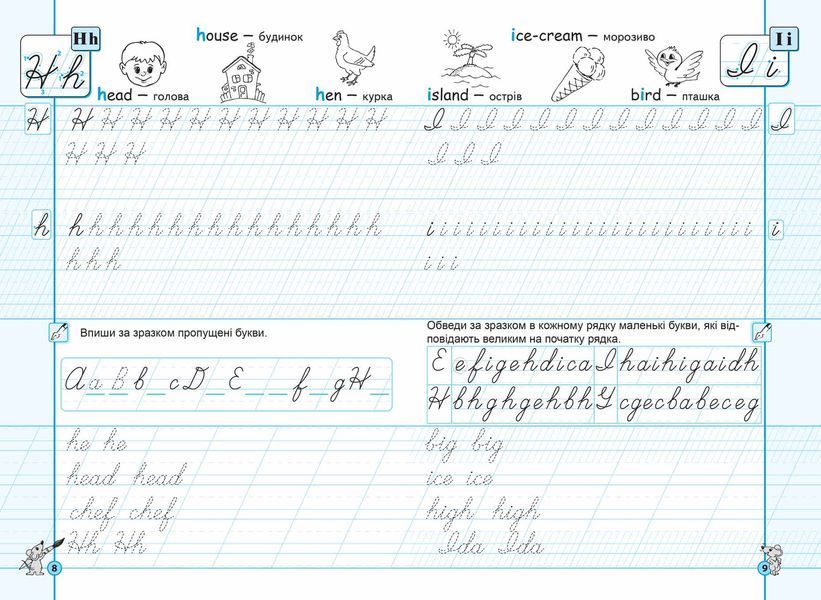 Hh
Hh
house – будинок
head – голова
hen – курка
H H H H H H H H H H H H
H H H
h h h h h h h h h h h h h h h h h
h h h
Впиши за зразком пропущені букви.
A a B b _ c D _ E _ _ f _ g H _
he he
head head
chef chef
Hh Hh
8
ice-cream – морозиво
island – острів
bird – пташка
I i
I i
I I I I I I I I I I I I I
I I I
i i i i i i i i i i i i i i i i i i i i i i i i i
i i i
Обведи за зразком в кожному рядку маленькі букви, які від-
повідають великим на початку рядка.
E efigehdica I haihigaidh
H bhghgehbh G cgecbabeceg
big big
ice ice
high high
Ida Ida
9